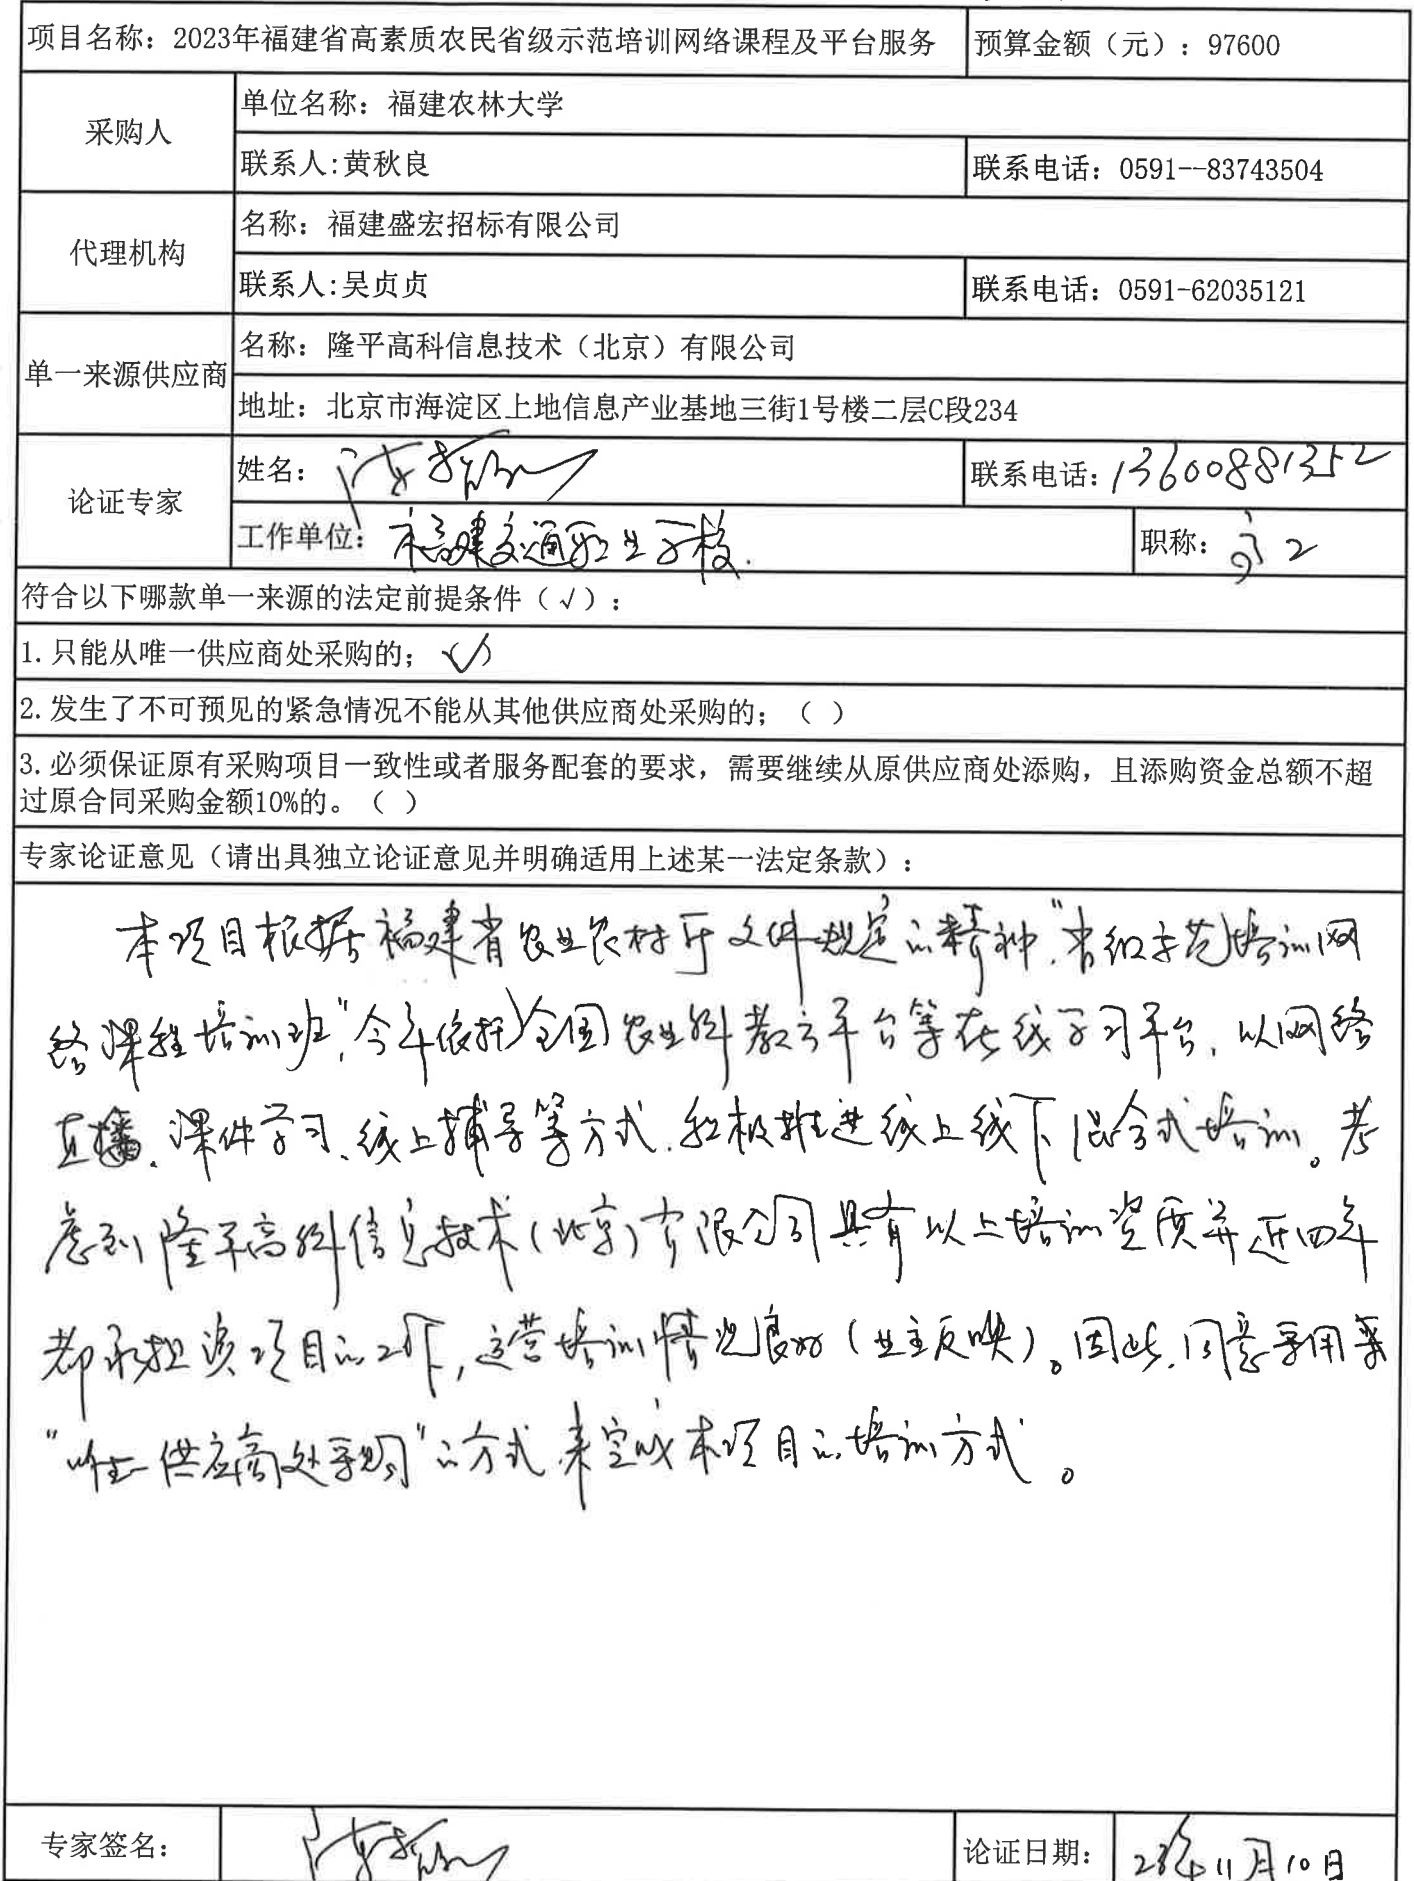 项目名称：2023年福建省高素质农民省级示范培训网络课程及平台服务 预算金额（元）：97600
采购人
单位名称：福建农林大学
联系人:黄秋良 联系电话：0591--83743504
代理机构
名称：福建盛宏招标有限公司
联系人:吴贞贞 联系电话：0591-62035121
单一来源供应商
名称：隆平高科信息技术（北京）有限公司
地址：北京市海淀区上地信息产业基地三街1号楼二层C段234
论证专家
姓名：陈 联系电话：13600881352
工作单位：福建交通职业学校. 职称：高工
符合以下哪款单一来源的法定前提条件（√）：
1.只能从唯一供应商处采购的；（√）
2.发生了不可预见的紧急情况不能从其他供应商处采购的；（ ）
3.必须保证原有采购项目一致性或者服务配套的要求，需要继续从原供应商处添购，且添购资金总额不超
过原合同采购金额10%的。（ ）
专家论证意见（请出具独立论证意见并明确适用上述某一法定条款）：
本项目根据福建省农业农村厅文件规定的精神，“省级示范培训网
络课程培训班”，今年依托全国农业科教云平台等在线学习平台，以网络
直播、课件学习、线上辅导等方式，积极推进线上线下混合式培训。考
虑到隆平高科信息技术（北京）有限公司具有以上培训资质并近四年
都承担该项目的工作，运营培训情况良好（业主反映）。因此，同意采用采
“唯一供应商处采购”的方式来完成本项目的培训方式。
专家签名：陈 论证日期：23年11月10日